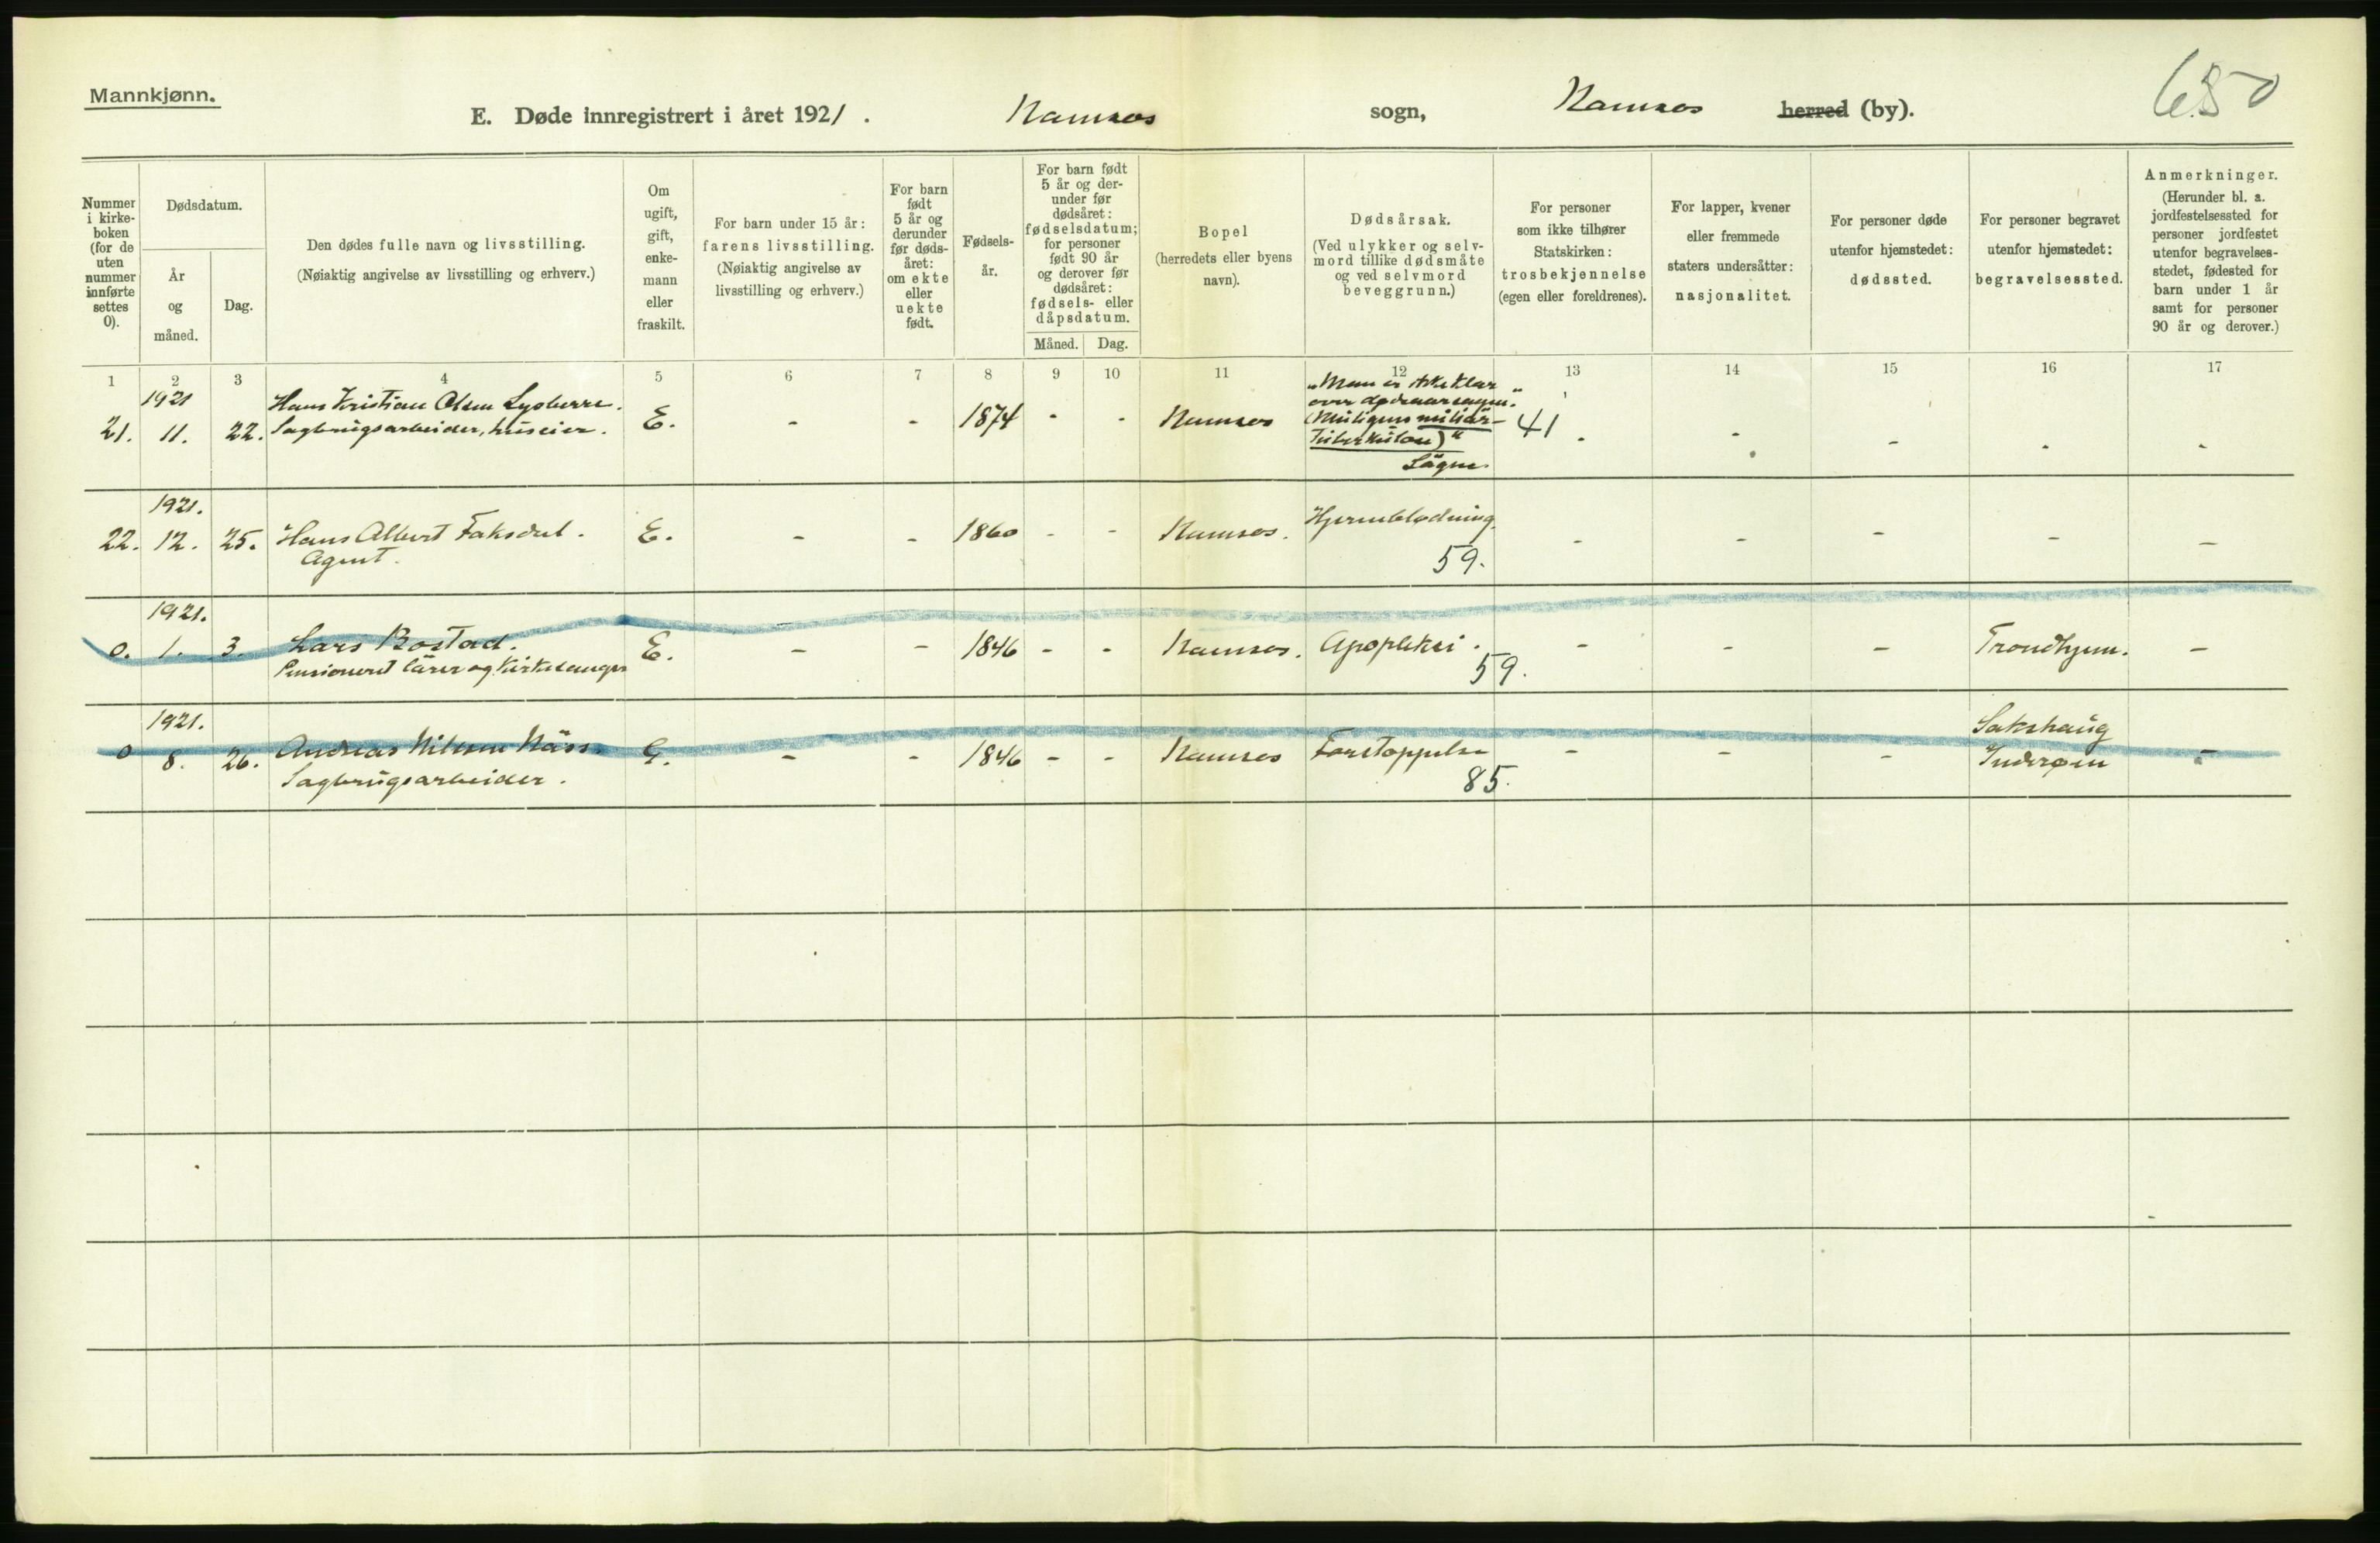 Mannkjønn.
E. Døde innregistrert i året 1921. Namsos sogn, Namsos herred (by).
650
Nummer i kirke-boken (for de uten nummer innførte settes 0).
Dødsdatum.
År og måned.
Dag.
Den dødes fulle navn og livsstilling.
(Nøiaktig angivelse av livsstilling og erhverv.)
Om ugift, gift, enke-mann eller fraskilt.
For barn under 15 år: farens livsstilling.
(Nøiaktig angivelse av livsstilling og erhverv.)
For barn født 5 år og derunder før døds-året: om ekte eller uekte født.
Fødsels-år.
For barn født 5 år og der-under før dødsåret: fødselsdatum; for personer født 90 år og derover før dødsåret: fødsels- eller dåpsdatum.
Måned. Dag.
Bopel (herredets eller byens navn).
Dødsårsak.
(Ved ulykker og selv-mord tillike dødsmåte og ved selvmord beveggrunn.)
For personer som ikke tilhører Statskirken: trosbekjennelse (egen eller foreldrenes).
For lapper, kvener eller fremmede staters undersåtter: nasjonalitet.
For personer døde utenfor hjemstedet: dødssted.
For personer begravet utenfor hjemstedet: begravelsessted.
Anmerkninger.
(Herunder bl. a. jordfestelsessted for personer jordfestet utenfor begravelses-stedet, fødested for barn under 1 år samt for personer 90 år og derover.)
1 2 3 4 5 6 7 8 9 10 11 12 13 14 15 16 17
1921
21. 11. 22. Hans Kristian Olsen
Sagbrugsarbeider, huseier. E. - - 1874 - - Namsos
"Man er ikke klar
over dødsaarsagen.
(Muligens miliær-
Tuberkulose)"
41 . - - - -
1921.
22. 12. 25. Hans Albert Faksdal. E. - - 1860 - - Namsos. Hjerneblødning. - - - - -
Agent.
59.
1921.
0. 1. 3. Lars Bostad. E. - - 1846 - - Namsos. Apopleksi. - - - Trondhjem. -
Pensioneret lærer og Kirkesanger
59.
1921.
0 8. 26. Andreas Nilssen Näss G. - - 1846 - - Namsos Forstoppelse - - - Sakshaug -
Sagbrugsarbeider.
Inderøen
85.